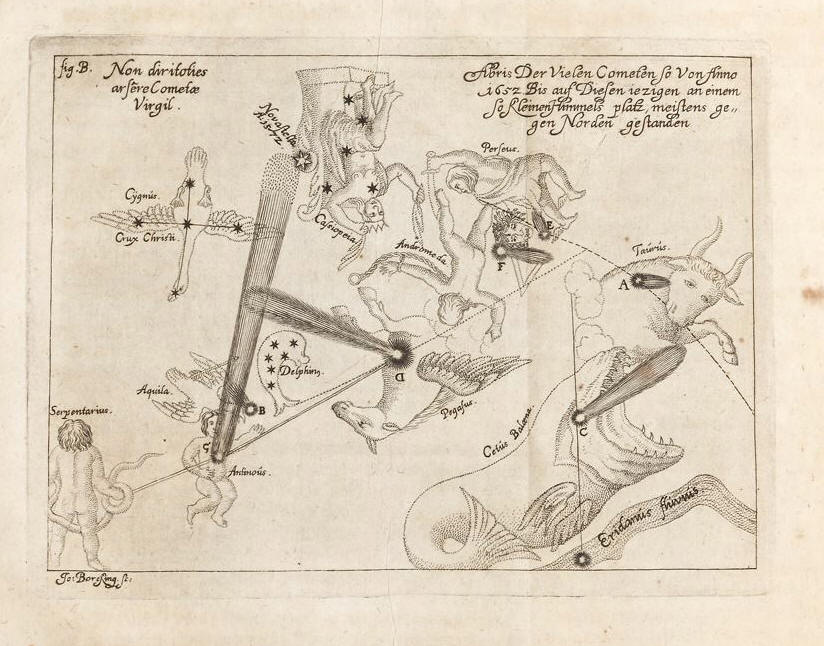 fig. B.
Non diritoties
arsére Cometæ
Virgil.
Abris Der Vielen Cometen so Von Anno
1652 Bis auf Diesen iezigen an einem
so Kleinen Himmels platz, meistens ge,,
gen Norden gestanden
Nova stella
A. 1572
Perseus.
Cÿgnus.
Crux Christi.
Casiopeia
E
Andromeda
F
Taurus.
A
D
Delphin.
Aquila.
B
Pegasus.
C
Serpentarius.
Cetus Balena.
Antinous.
Eridanus fluvius.
Jo: Borcking. sc: